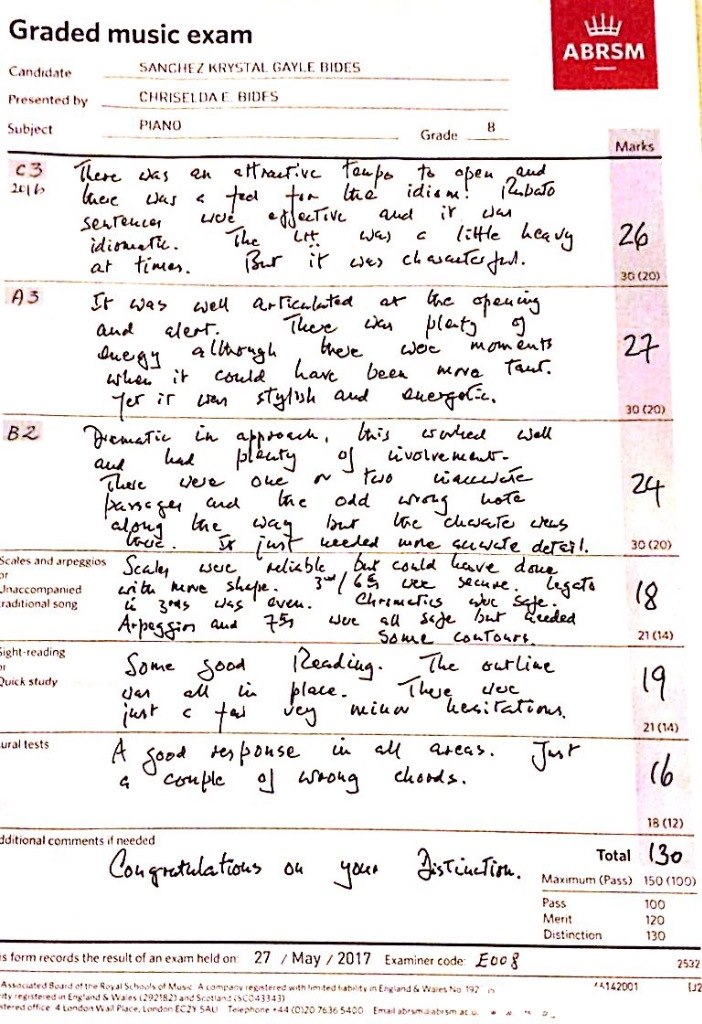 Graded music exam
ABRSM
Candidate SANCHEZ KRYSTAL GAYLE BIDES
Presented by CHRISELDA E. BIDES
Subject PIANO Grade 8
Marks
C3 There was an attractive tempo to open and
2016 there was a feel for the idiom! Rubato
sentences were effective and it was
idiomatic. The LH was a little heavy
at times. But it was characterful.
26
30 (20)
A3 It was well articulated at the opening
and alert. There was plenty of
energy although there were moments
when it could have been more taut.
Yet it was stylish and energetic.
27
30 (20)
B2 Dramatic in approach, this worked well
and had plenty of involvement.
There were one or two inaccurate
passages and the odd wrong note
along the way but the character was
there. It just needed more accurate detail.
24
30 (20)
Scales and arpeggios
or
Unaccompanied
traditional song
Scales were reliable but could have done
with more shape. 3rd/6ths were secure. Legato
in 3rds was even. Chromatics were safe.
Arpeggios and 7ths were all safe but needed
some contours.
18
21 (14)
Sight-reading
or
Quick study
Some good Reading. The outline
was all in place. There were
just a few very minor hesitations.
19
21 (14)
ural tests
A good response in all areas. Just
a couple of wrong chords.
16
18 (12)
dditional comments if needed
Congratulations on your Distinction.
Total 130
Maximum (Pass) 150 (100)
Pass 100
Merit 120
Distinction 130
is form records the result of an exam held on 27 / May / 2017 Examiner code: E008
2532
Associated Board of the Royal Schools of Music. A company registered with limited liability in England & Wales No. 192
rity registered in England & Wales (292182) and Scotland (SC043343)
stered office 4 London Wall Place, London EC2Y 5AU Telephone +44 (0)20 7636 5400 Email abrsm@abrsm.ac.u
142001